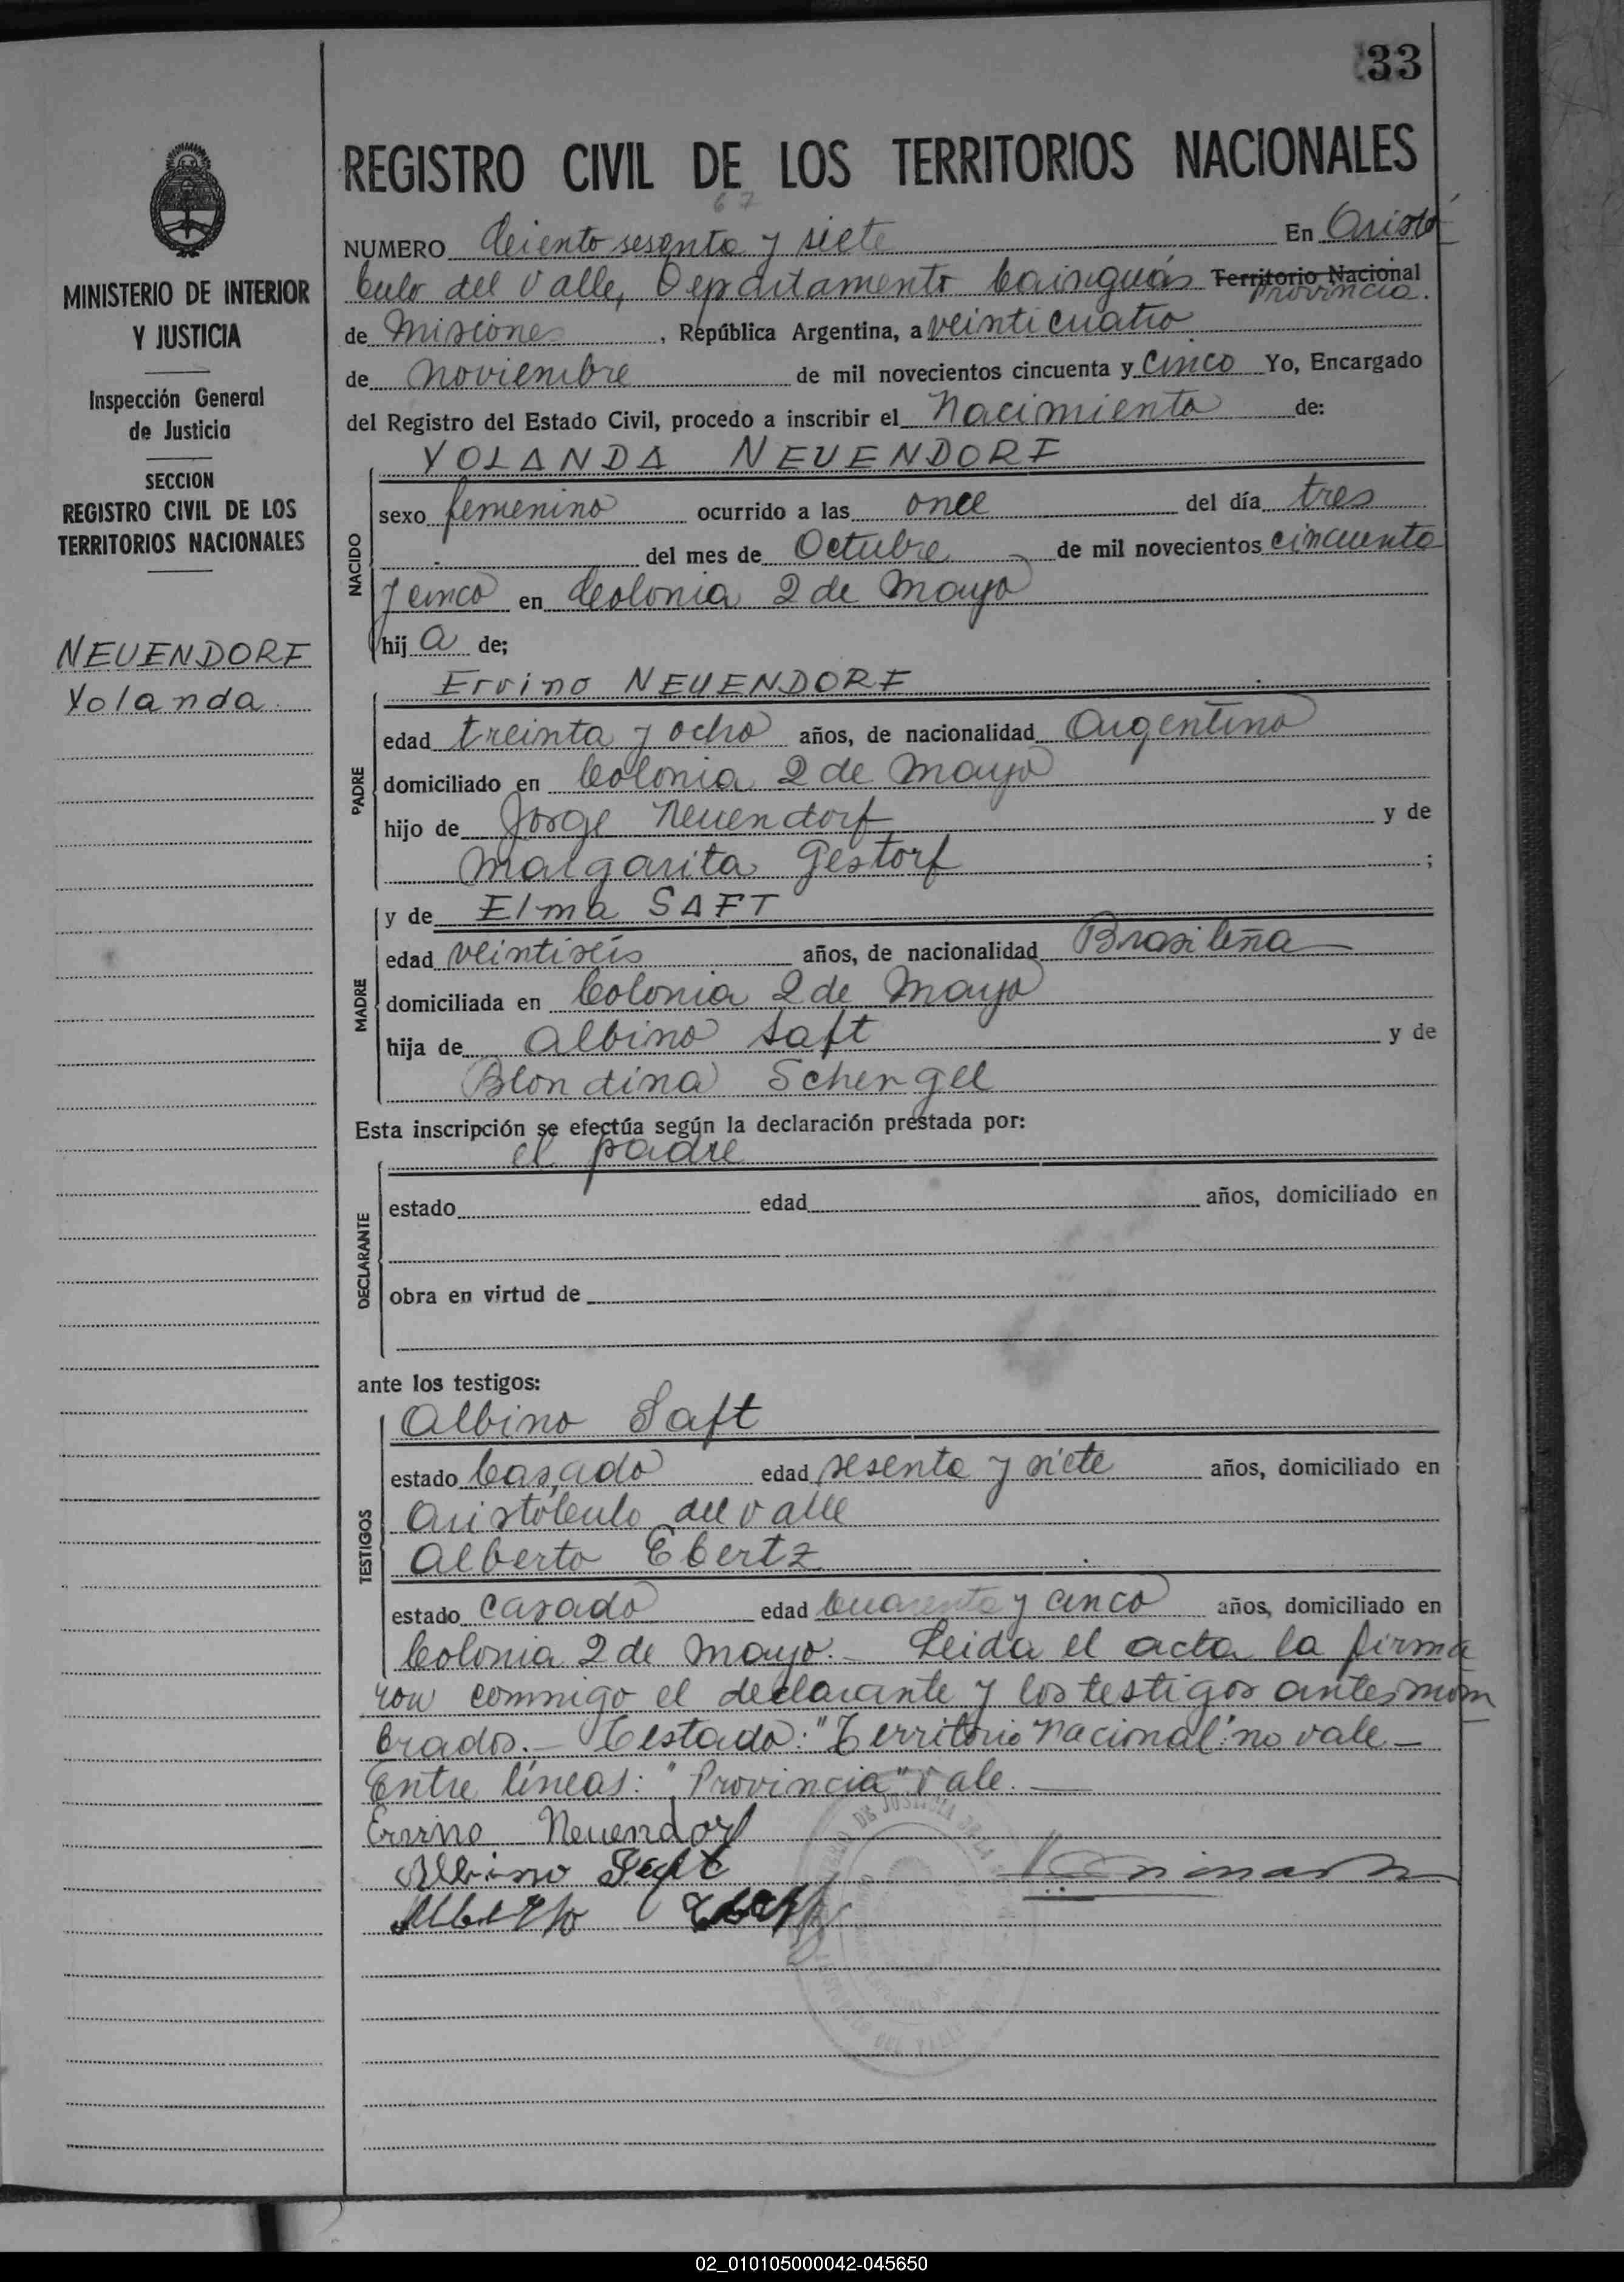 33
REGISTRO CIVIL DE LOS TERRITORIOS NACIONALES
67
NUMERO Ciento sesenta y siete En Aristó
bulo del Valle, Departamento Cainguás Territorio Nacional
Provincia.
de Misiones, República Argentina, a veinticuatro
de Noviembre de mil novecientos cincuenta y cinco Yo, Encargado
del Registro del Estado Civil, procedo a inscribir el Nacimiento de:
NACIDO
YOLANDA NEUENDORF
sexo femenino ocurrido a las once del día tres
del mes de Octubre de mil novecientos cincuenta
y cinco en Colonia 2 de Mayo
hij a de;
PADRE
Ervino NEUENDORF
edad treinta y ocho años, de nacionalidad Argentino
domiciliado en Colonia 2 de Mayo
hijo de Jorge Neuendorf y de
Malgarita Gestorf ;
MADRE
y de Elma SAFT
edad veintiseis años, de nacionalidad Brasileña
domiciliada en Colonia 2 de Mayo
hija de Albino Saft y de
Blondina Schengel
Esta inscripción se efectúa según la declaración prestada por:
DECLARANTE
el padre
estado edad años, domiciliado en
obra en virtud de
ante los testigos:
TESTIGOS
Albino Saft
estado Casado edad sesenta y siete años, domiciliado en
Aristóbulo del Valle
Alberto Ebertz
estado Casado edad Cuarenta y cinco años, domiciliado en
Colonia 2 de Mayo.- Leida el acta la firma
ron conmigo el declarante y los testigos antes nom
brados.- Testado: "Territorio Nacional": no vale-
Entre líneas: "Provincia" Vale.
Ervino Neuendorf
Albino Saft
Alberto
MINISTERIO DE INTERIOR
Y JUSTICIA
Inspección General
de Justicia
SECCION
REGISTRO CIVIL DE LOS
TERRITORIOS NACIONALES
NEUENDORF
Yolanda
02_010105000042-045650